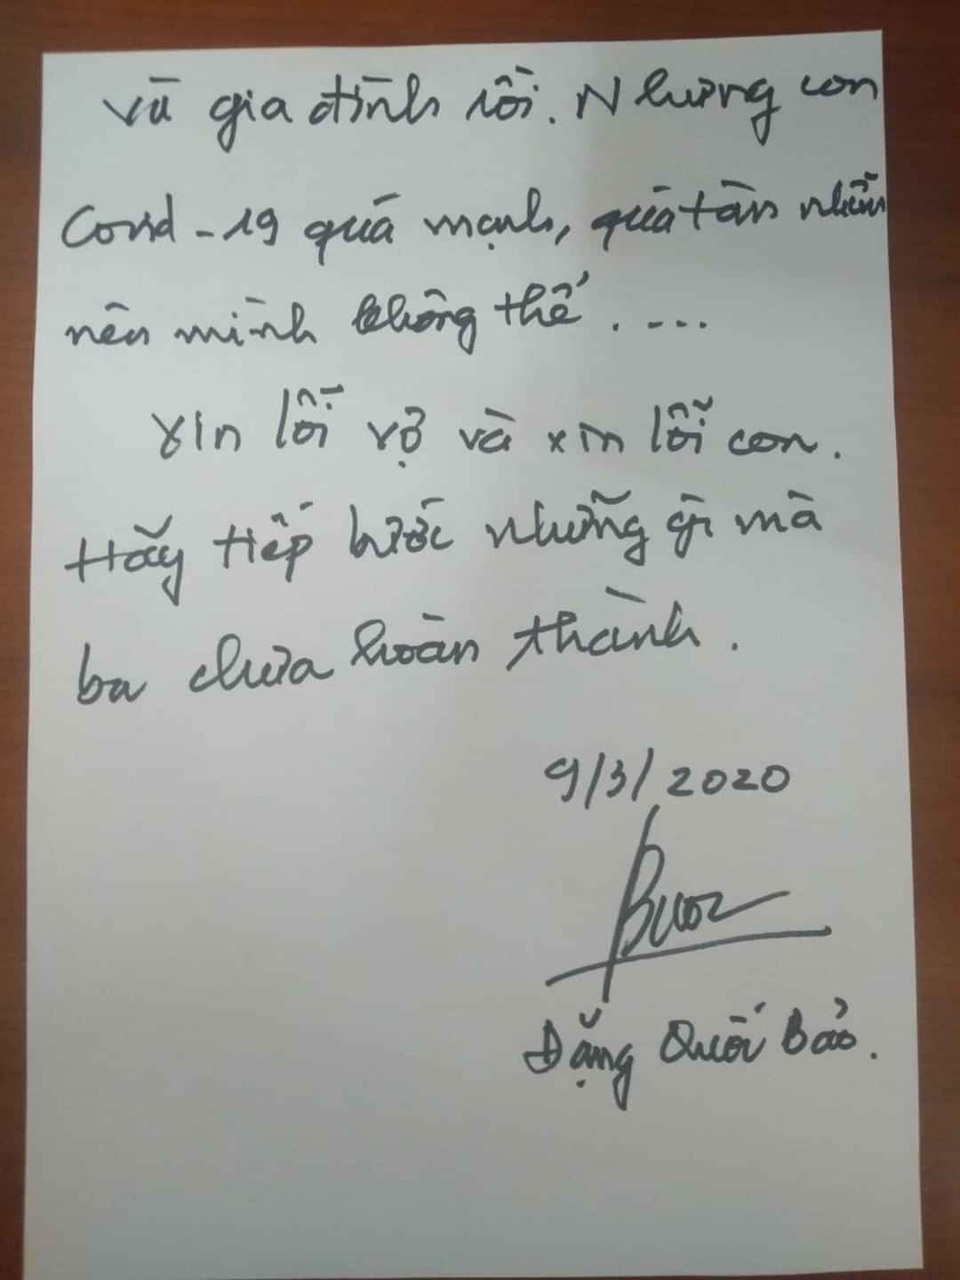 và gia đình rồi. Nhưng con
Covid-19 quá mạnh, quá tàn nhẫn
nên mình không thể.....
Xin lỗi vợ và xin lỗi con.
Hãy tiếp bước những gì mà
ba chưa hoàn thành.
9/3/2020
Đặng Quốc Bảo.